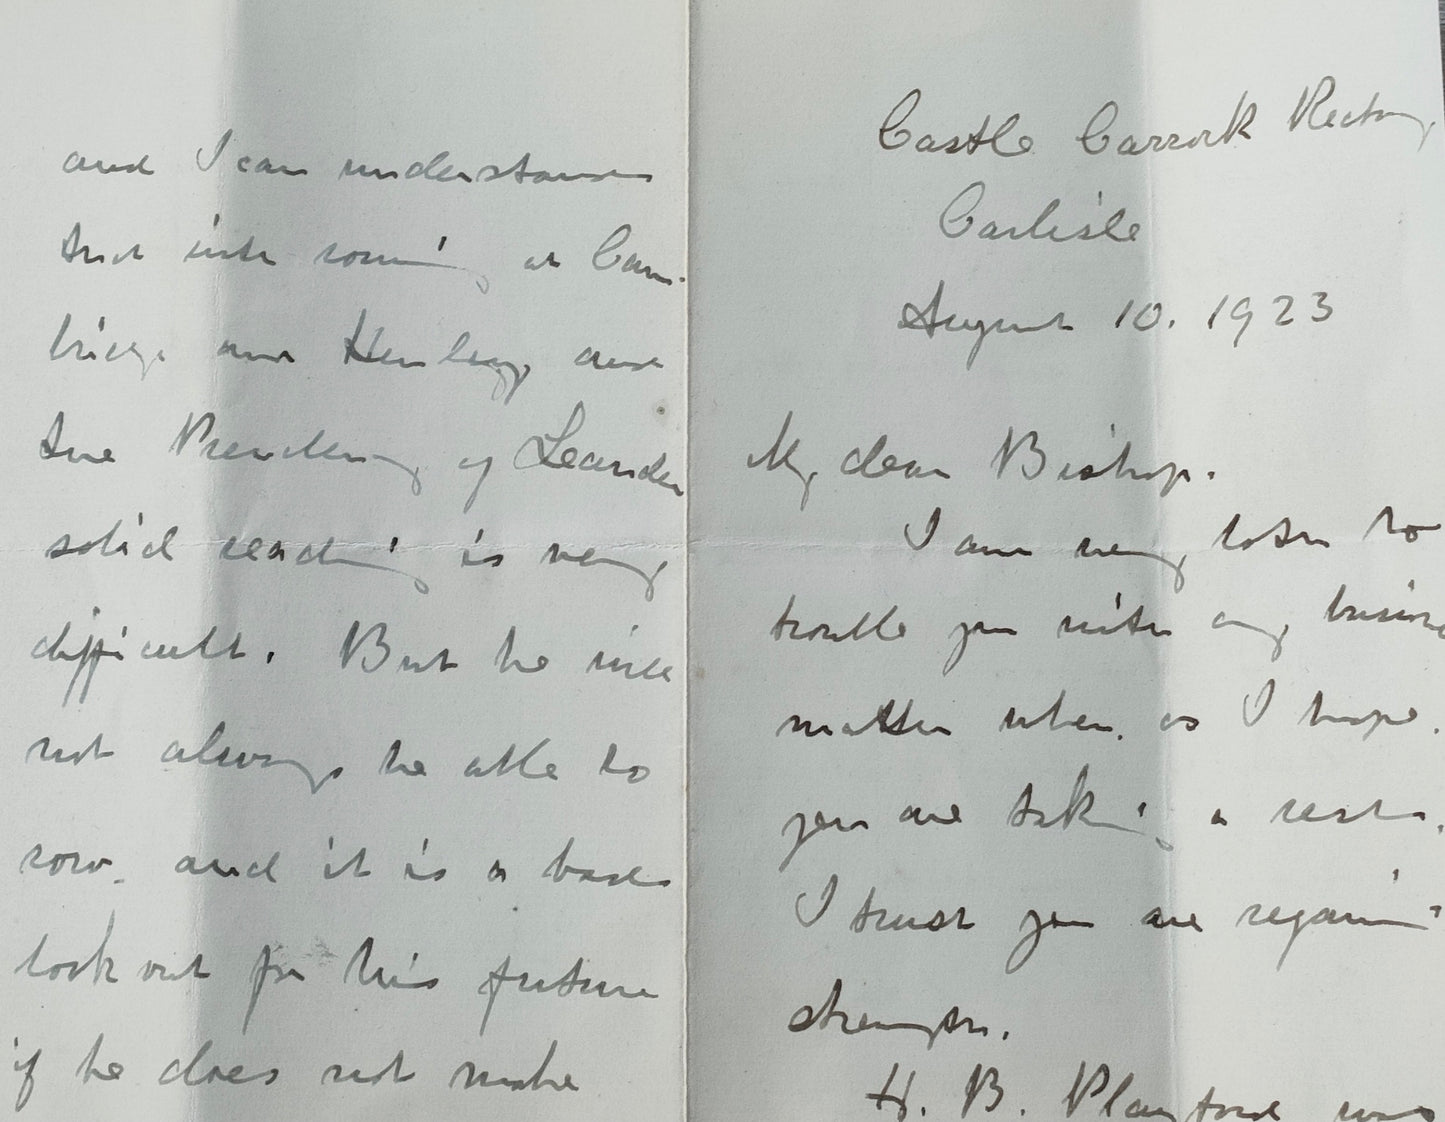 Castle Carrock Rectory,
Carlisle
August 10. 1923
My dear Bishop.
I am very loth to
trouble you with any business
matter when, as I hope,
you are taking a rest.
I trust you are regaining
strength.
H. B. Playford was
and I can understand
that with rowing at Cam-
bridge and Henley, and
the Presidency of Leander
solid reading is very
difficult. But he will
not always be able to
row, and it is a bad
look out for his future
if he does not make